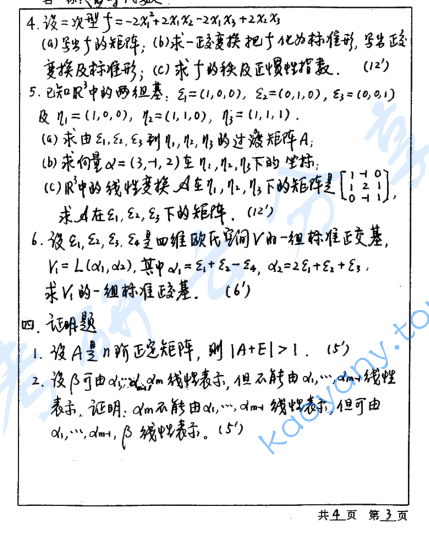 4. 设二次型f=-2x₁²+2x₁x₂-2x₁x₃+2x₂x₃
(a)写出f的矩阵; (b)求一正交变换把f化为标准形, 写出正交
变换及标准形; (c) 求f的秩及正惯性指数. (12')
5. 已知R³中的两组基: ε₁=(1,0,0), ε₂=(0,1,0), ε₃=(0,0,1)
及 η₁=(1,0,0), η₂=(1,1,0), η₃=(1,1,1).
(a) 求由ε₁,ε₂,ε₃到η₁,η₂,η₃的过渡矩阵A;
(b) 求向量α=(3,-1,2)在η₁,η₂,η₃下的坐标;
(c) R³中的线性变换𝒜在η₁,η₂,η₃下的矩阵是[1 -1 0
1 2 1
0 -1 1],
求𝒜在ε₁,ε₂,ε₃下的矩阵. (12')
6. 设ε₁,ε₂,ε₃,ε₄是四维欧氏空间V的一组标准正交基,
V₁=L(α₁,α₂), 其中α₁=ε₁+ε₂-ε₄, α₂=2ε₁+ε₂+ε₃,
求V₁的一组标准正交基. (6')
四. 证明题
1. 设A是n阶正定矩阵, 则|A+E|>1. (5')
2. 设β可由α₁,…,αm线性表示, 但不能由α₁,…,αm-1线性
表示, 证明: αm不能由α₁,…,αm-1线性表示, 但可由
α₁,…,αm-1,β线性表示. (5')
共4页 第3页
考研云分享
kaoyany.to